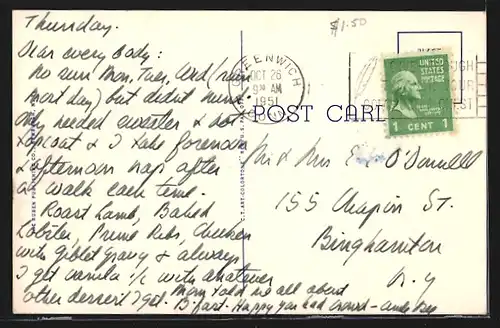 Thursday.
Dear every Body:
no sun Mon, Tues, Wed (rain
most day) but didn't mind.
Only needed sweater &
topcoat & I take forenoon
& afternoon nap after
a walk each time.
Roast Lamb, Baked
Lobster, Prime Ribs, Chicken
with Giblet Gravy & always
I get vanilla i/c with whatever
other dessert I get. Mom told me all about
B'fast. Happy you had crowd -
$1.50
GREENWICH
OCT 26
9 AM
1951
POST CARD
UNITED
STATES
POSTAGE
1 CENT 1
Mr & Mrs E O'Donnell
155 Chapin St.
Binghamton
N.Y